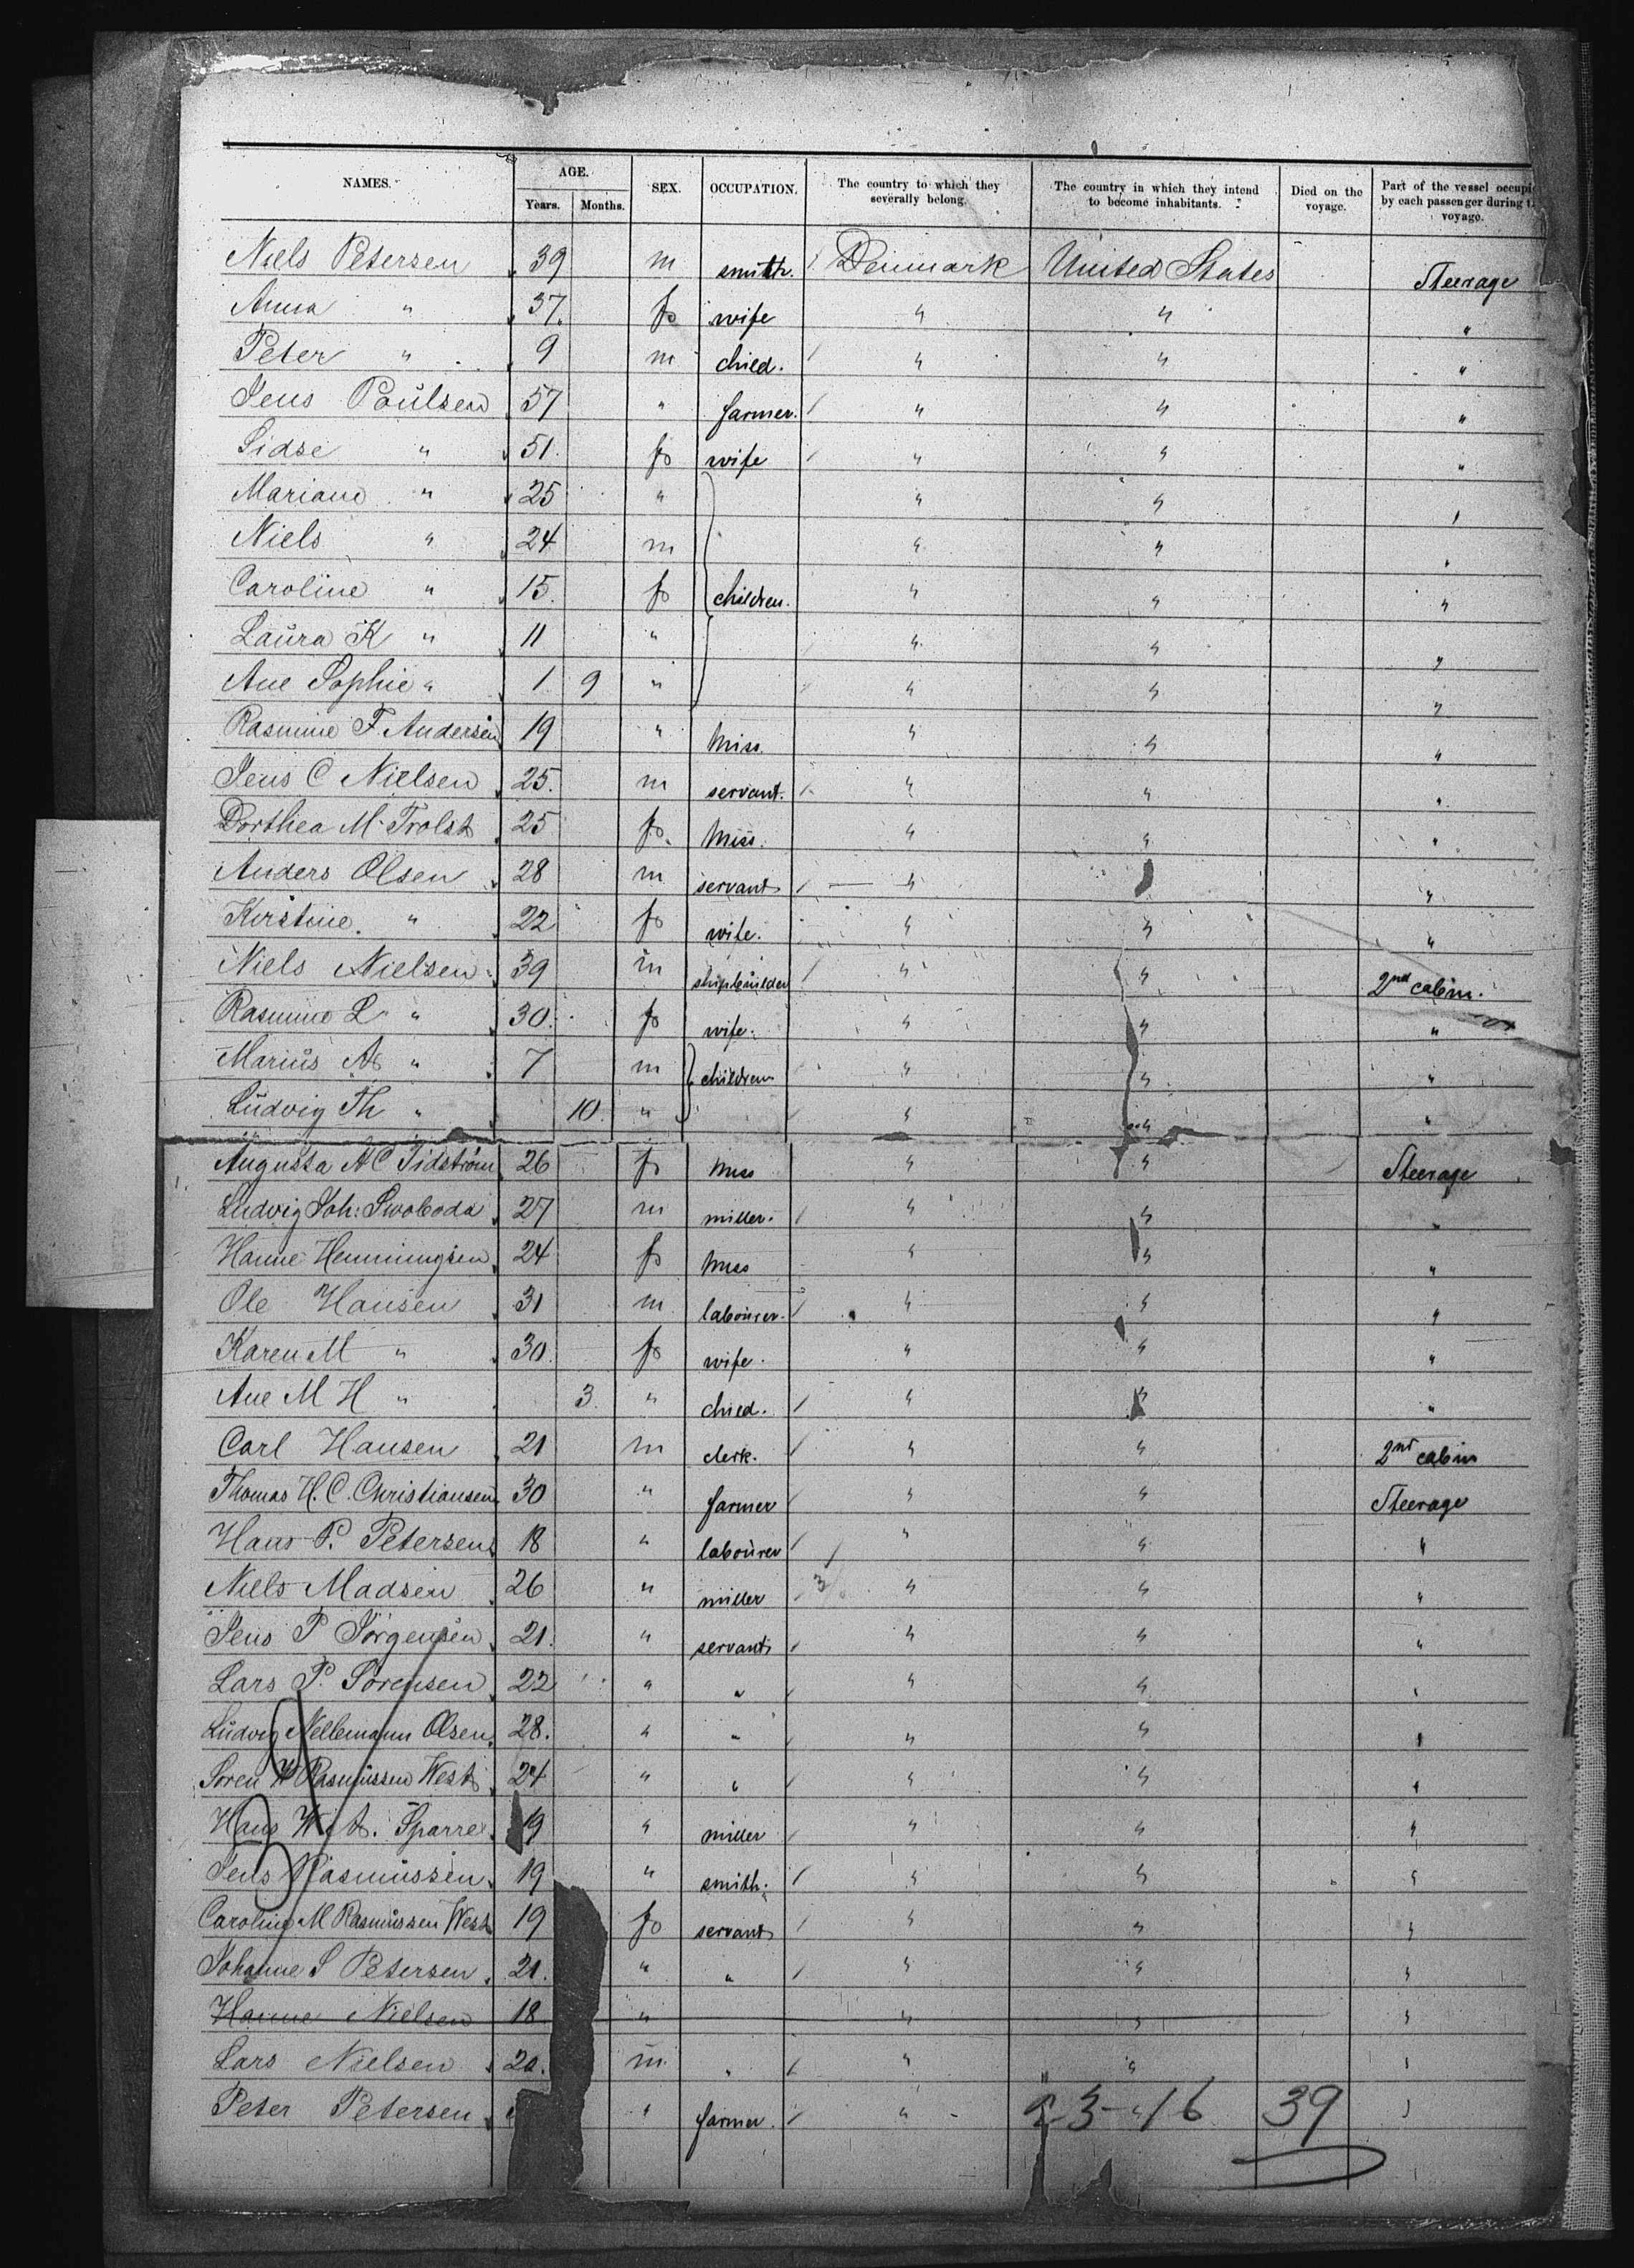 NAMES. AGE. SEX. OCCUPATION. The country to which they severally belong. The country in which they intend to become inhabitants. Died on the voyage. Part of the vessel occupied by each passenger during the voyage.
Years. Months.
Niels Petersen 39 m smith. Denmark United States Steerage
Anna " 37. f wife " " "
Peter " 9 m child. " " "
Jens Poulsen 57 " farmer. " " "
Sidse " 51. f wife " " "
Mariane " 25 " " " "
Niels " 24 m " " "
Caroline " 15. f children. " " "
Laura K " 11 " " " "
Ane Sophie " 1. 9 " " " "
Rasmine F. Andersen 19 " Miss. " " "
Jens C Nielsen 25. m servant. " " "
Dorthea M. Trolst 25 f. Miss. " " "
Anders Olsen 28 m servant " "
Kirstine. " 22 f wife. " " "
Niels Nielsen 39 m shipbuilder " " 2nd cabin.
Rasmine L " 30. f wife. " " "
Marius A " 7 m children " " "
Ludvig Th " 10 " " " "
Augusta A C Tidström 26 f Miss " " Steerage
Ludvig Joh: Swoboda 27 m miller. " " "
Hanne Henningsen 24 f Miss " " "
Ole Hansen 31 m labourer. " " "
Karen M " 30. f wife. " " "
Ane M H " 3. " child. " " "
Carl Hansen 21 m clerk. " " 2nd cabin
Thomas H. C. Christiansen 30 " farmer " " Steerage
Hans P. Petersen 18 " labourer " " "
Niels Madsen 26 " miller " " "
Jens P Jörgensen 21. " servant " " "
Lars P. Sörensen 22 " " " " "
Ludvig Nellemann Olsen 28. " " " " "
Soren Rasmussen West 24 " " " " "
Hans W. A. Sparre 19 " miller " " "
Jens Rasmussen 19 " smith. " " "
Caroline M Rasmussen West 19 f servant " " "
Johanne S Petersen 21. " " " " "
Hanne Nielsen 18 " " " "
Lars Nielsen 20. m " " " "
Peter Petersen " farmer. " 39 "